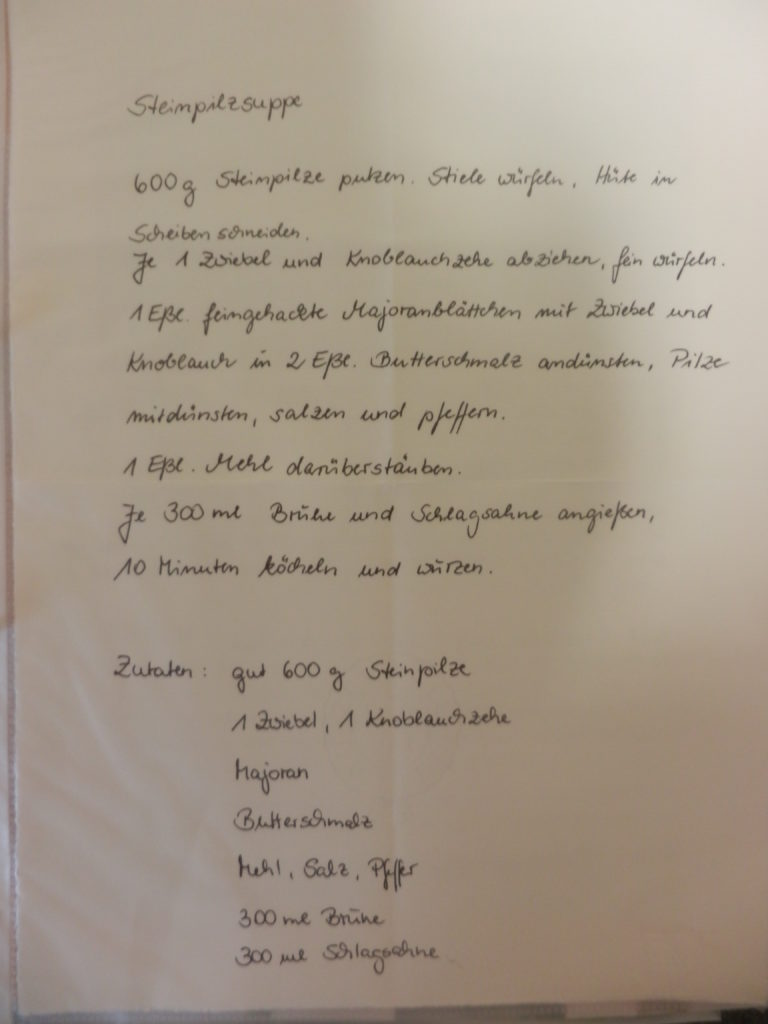 Steinpilzsuppe
600 g Steinpilze putzen. Stiele würfeln, Hüte in
Scheiben schneiden.
Je 1 Zwiebel und Knoblauchzehe abziehen, fein würfeln.
1 Eßl. feingehackte Majoranblättchen mit Zwiebel und
Knoblauch in 2 Eßl. Butterschmalz andünsten, Pilze
mitdünsten, salzen und pfeffern.
1 Eßl. Mehl darüberstäuben.
Je 300 ml Brühe und Schlagsahne angießen,
10 Minuten köcheln und würzen.
Zutaten: gut 600 g Steinpilze
1 Zwiebel, 1 Knoblauchzehe
Majoran
Butterschmalz
Mehl, Salz, Pfeffer
300 ml Brühe
300 ml Schlagsahne